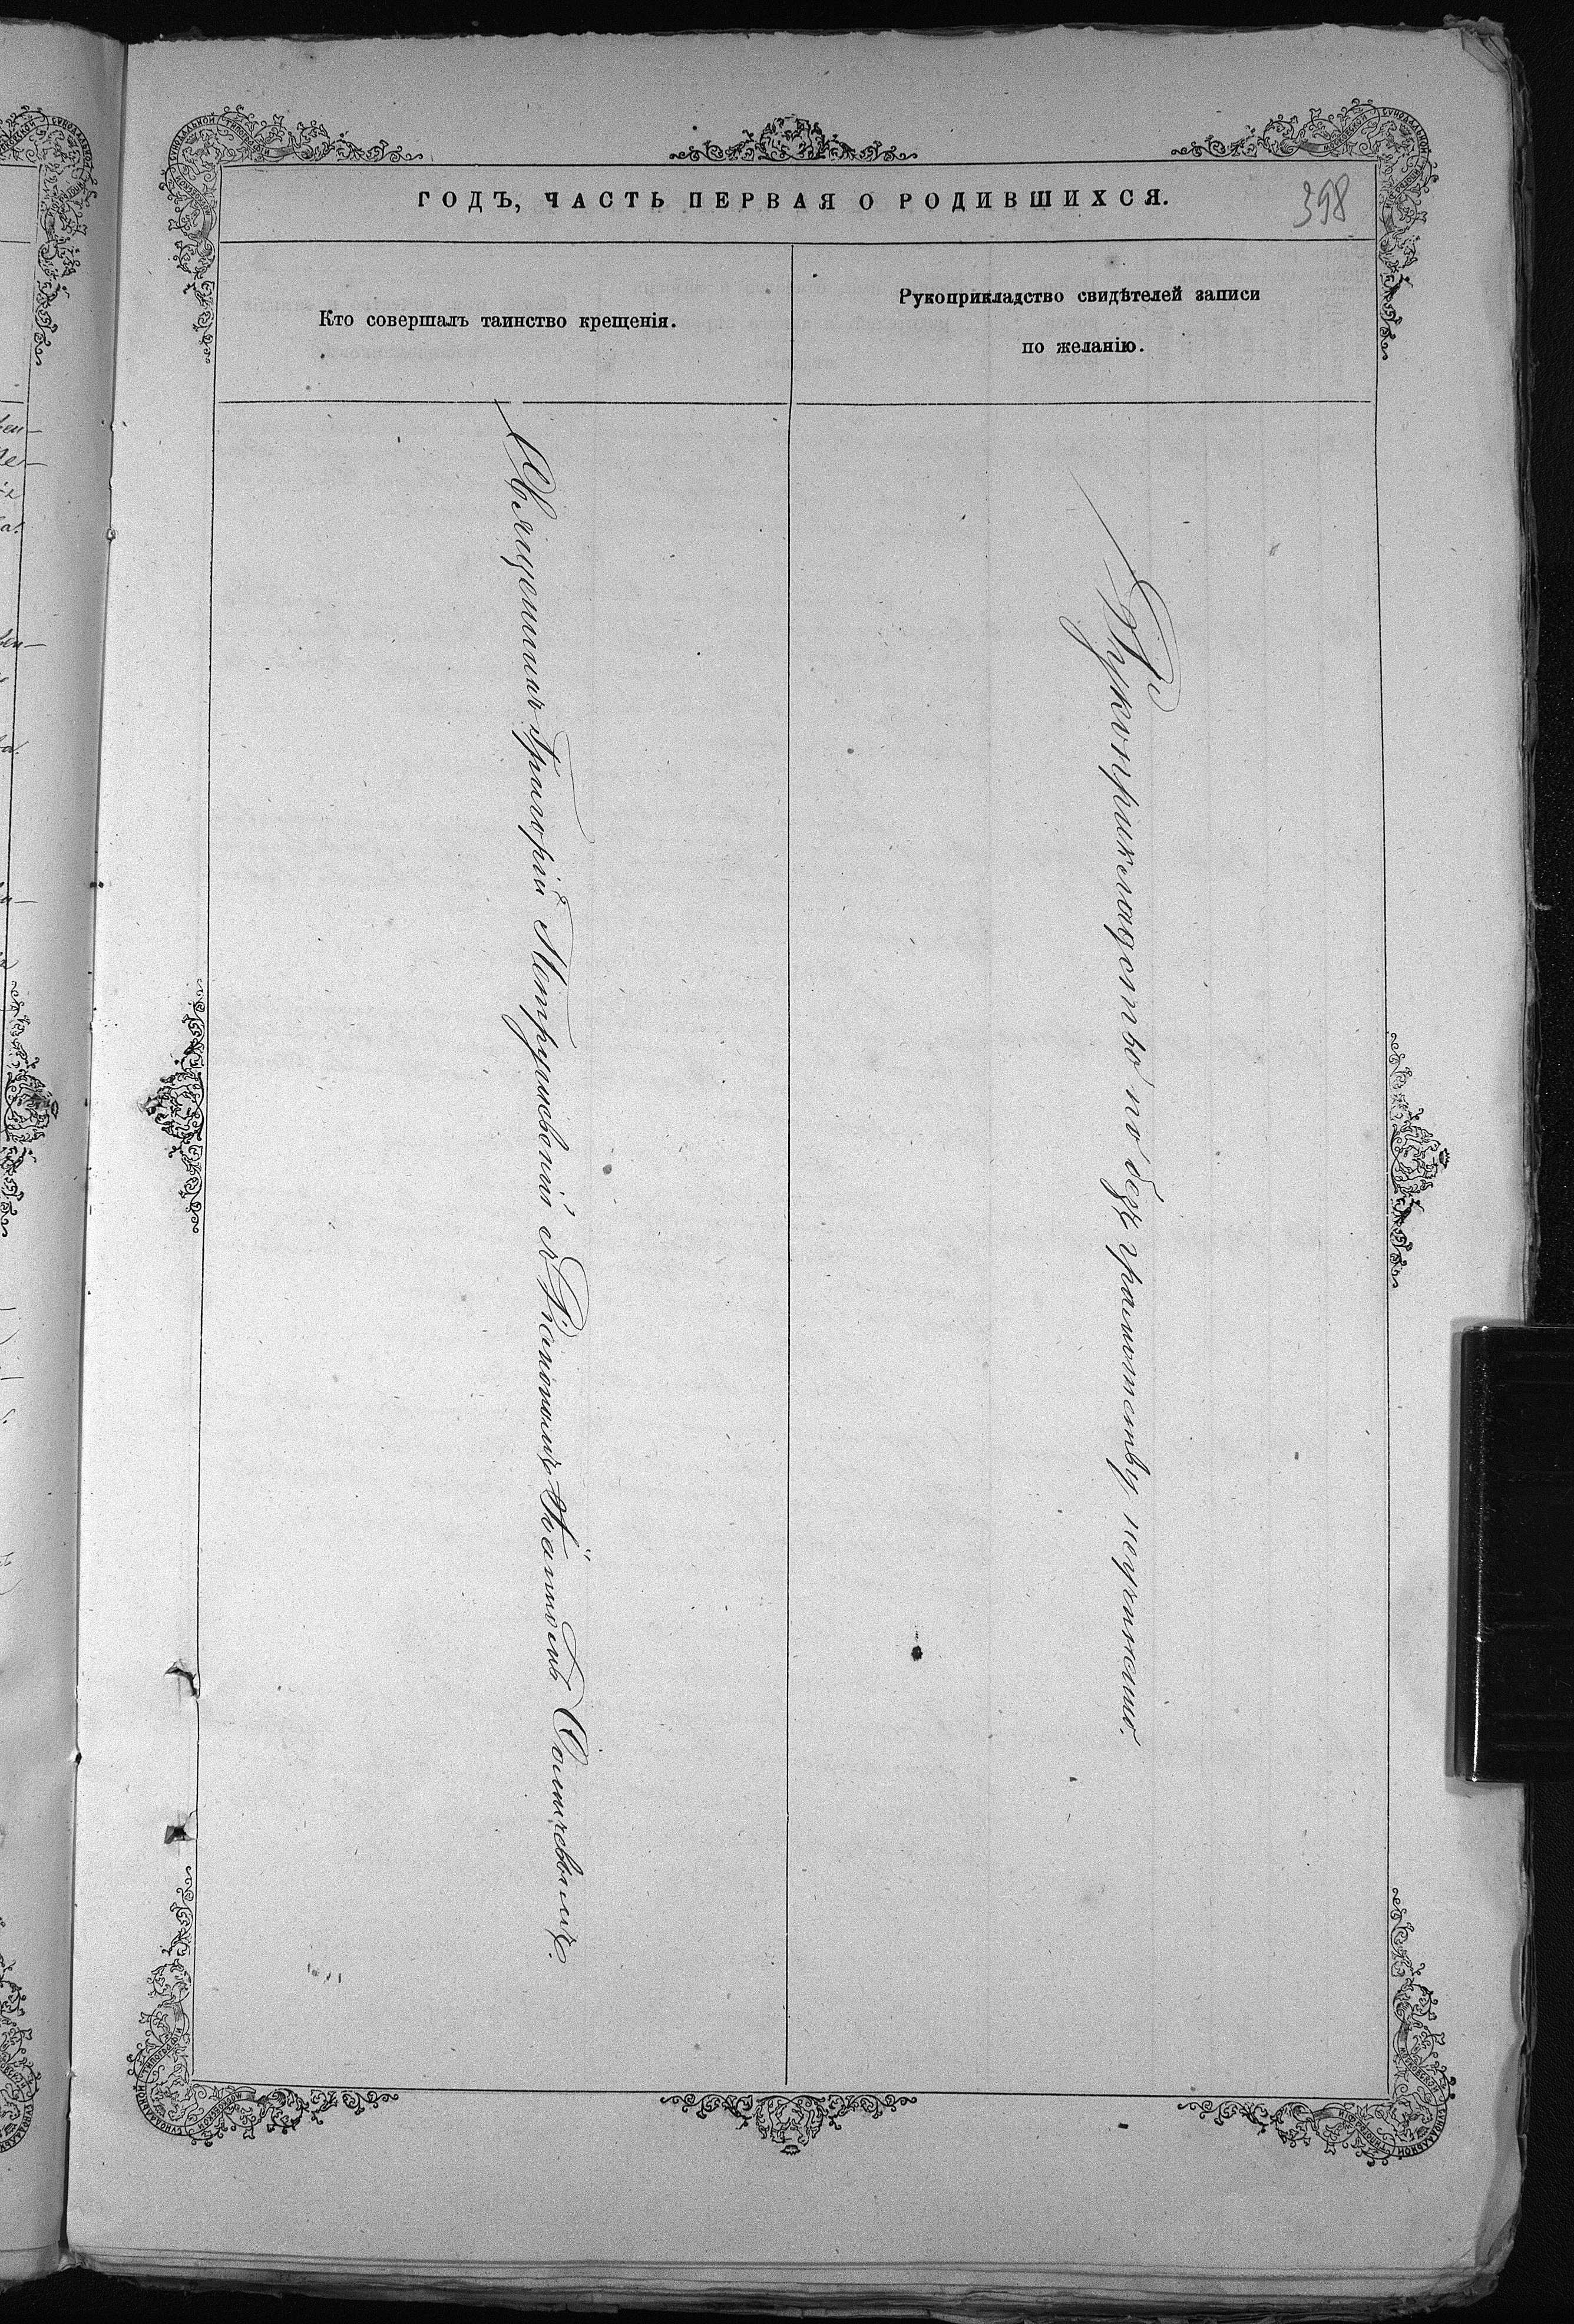 ГОДЪ, ЧАСТЬ ПЕРВАЯ О РОДИВШИХСЯ.
398
Кто совершалъ таинство крещенія.
Рукоприкладство свидѣтелей записи
по желанію.
Священникъ Григорій Петрушевскій съ Діакономъ
Рукоприкладство по безграмотству неучинено.